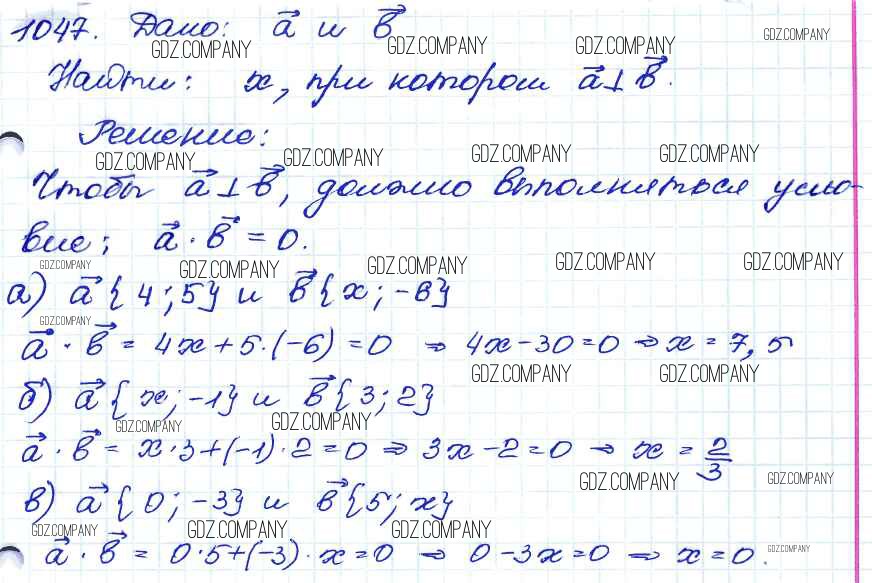 1047. Дано: a⃗ и b⃗
GDZ.COMPANY GDZ.COMPANY GDZ.COMPANY GDZ.COMPANY
Найти: x, при котором a⃗⊥b⃗.
Решение:
GDZ.COMPANY GDZ.COMPANY GDZ.COMPANY GDZ.COMPANY
Чтобы a⃗⊥b⃗, должно выполняться усло-
вие: a⃗ · b⃗ = 0.
GDZ.COMPANY GDZ.COMPANY GDZ.COMPANY GDZ.COMPANY GDZ.COMPANY
а) a⃗ {4; 5} и b⃗ {x; -6}
GDZ.COMPANY
a⃗ · b⃗ = 4x + 5·(-6) = 0 ⇒ 4x - 30 = 0 ⇒ x = 7,5
GDZ.COMPANY GDZ.COMPANY
б) a⃗ {x; -1} и b⃗ {3; 2}
GDZ.COMPANY GDZ.COMPANY
a⃗ · b⃗ = x·3 + (-1)·2 = 0 ⇒ 3x - 2 = 0 ⇒ x = 2/3
GDZ.COMPANY GDZ.COMPANY
в) a⃗ {0; -3} и b⃗ {5; x}
GDZ.COMPANY GDZ.COMPANY GDZ.COMPANY
a⃗ · b⃗ = 0·5 + (-3)·x = 0 ⇒ 0 - 3x = 0 ⇒ x = 0.
GDZ.COMPANY